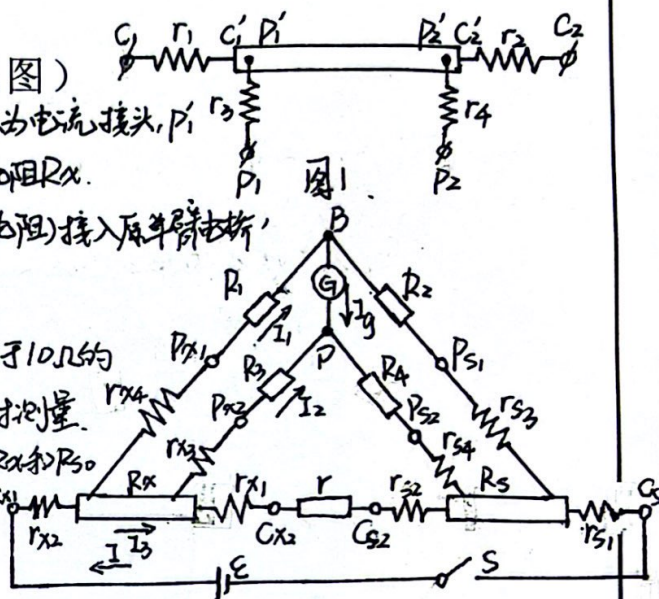 C₁ r₁ C₁' P₁' P₂' C₂' r₂ C₂
图）
为电流接头,P₁'
r₃ r₄
阻Rx.
P₁ 图1. P₂
电阻)接入原单臂电桥,
B
R₁ G R₂
I₁ Ig
Px₁ P Ps₁
于10Ω的
R₃ R₄
rx₄ Px₂ I₂ Ps₂ rs₃
测量.
rx₃ rs₄
Rx和Rs。
Rx rx₁ r rs₂ Rs
rx₂ Cx₂ Cs₂ rs₁
I I₃
ε S